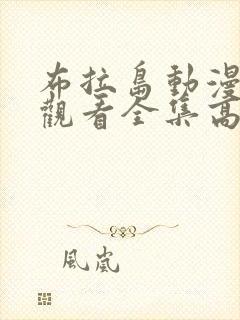 布拉島動漫
觀看全集高
風嵐